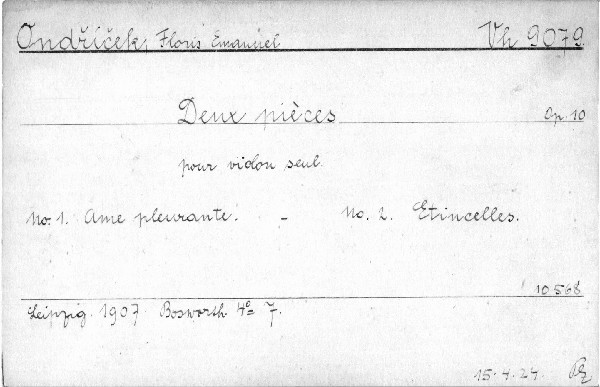 Ondříček, Floris Emanuel Vh 9079.
Deux pièces Op. 10
pour violon seul.
No. 1. Ame pleurante. - No. 2. Etincelles.
10568
Leipzig. 1907. Bosworth 4° 7.
15.4.24.